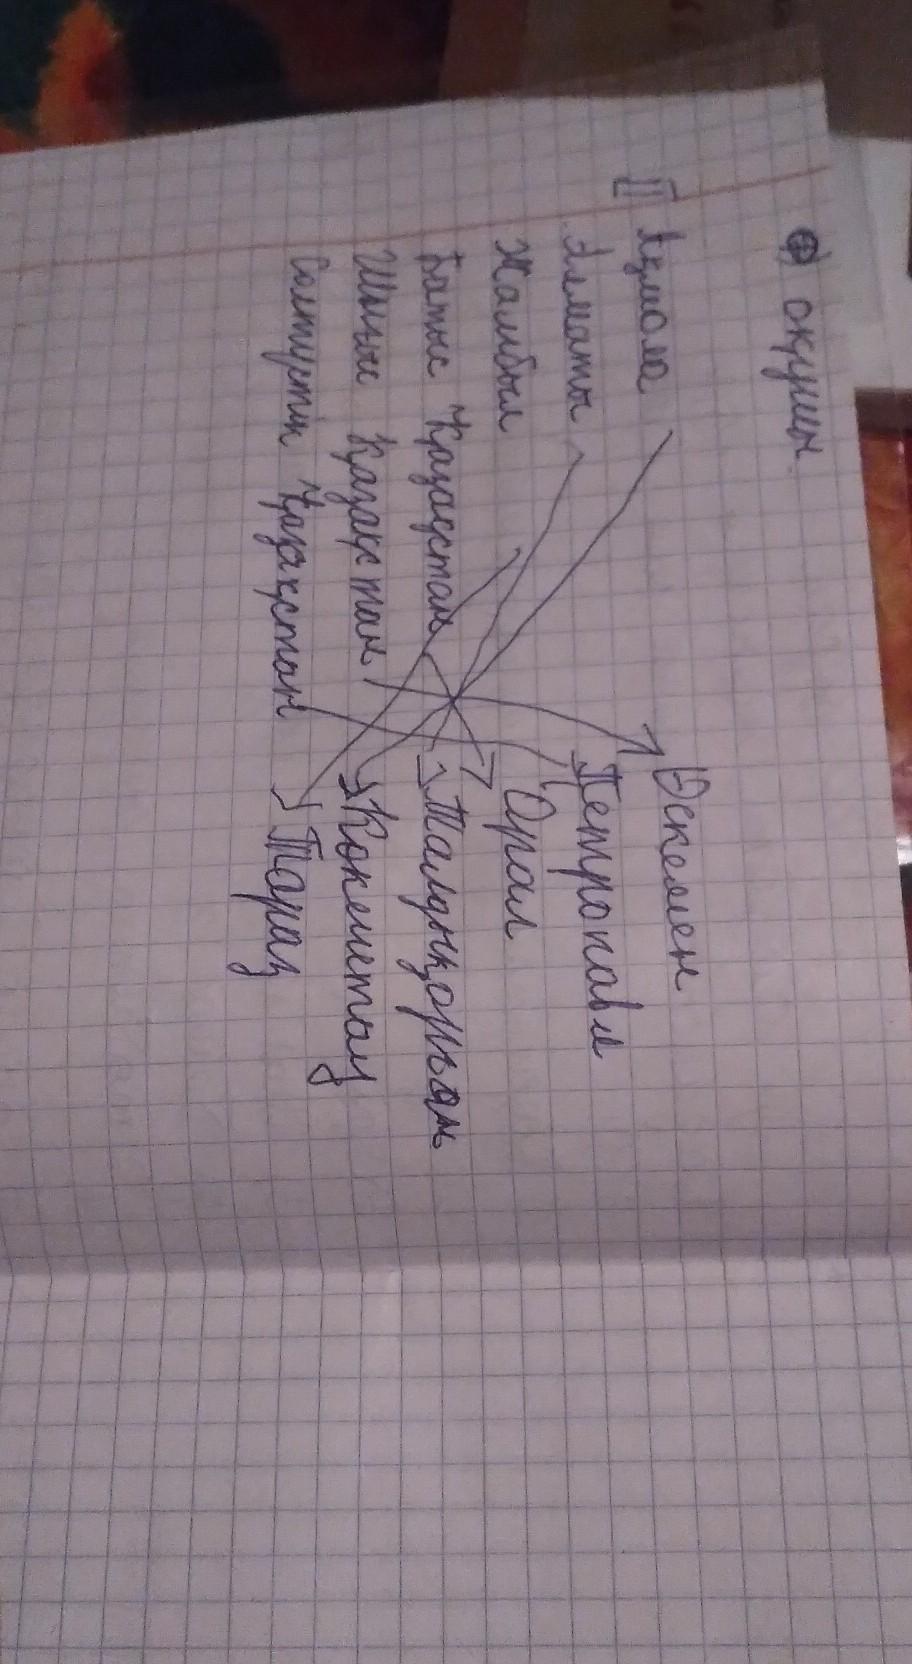 оқушы
Ақмола
Алматы
Жамбыл
Батыс Қазақстан
Шығыс Қазақстан
Солтүстік Қазақстан
Өскемен
Петропавл
Орал
Талдықорған
Кокшетау
Тараз